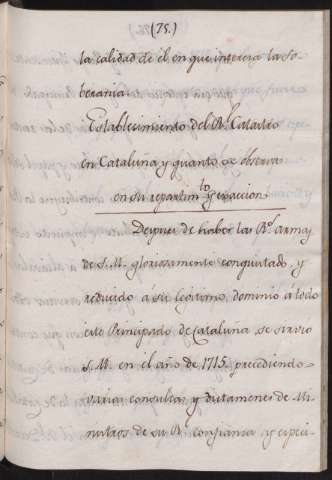 (75.)
la calidad de el en que interesa la So-
berania.
Establecimiento del Rl. Catastro
en Cataluña y quanto se observa
en su repartimto. y exaccion
Despues de haber las Rs. armas
de S. M. gloriosamente conquistado, y
reducido a su legitimo dominio á todo
este Principado de Cataluña se sirvio
S. M. en el año de 1715. precediendo
varias consultas, y dictamenes de Mi-
nistros de su Rl. confianza y especi-